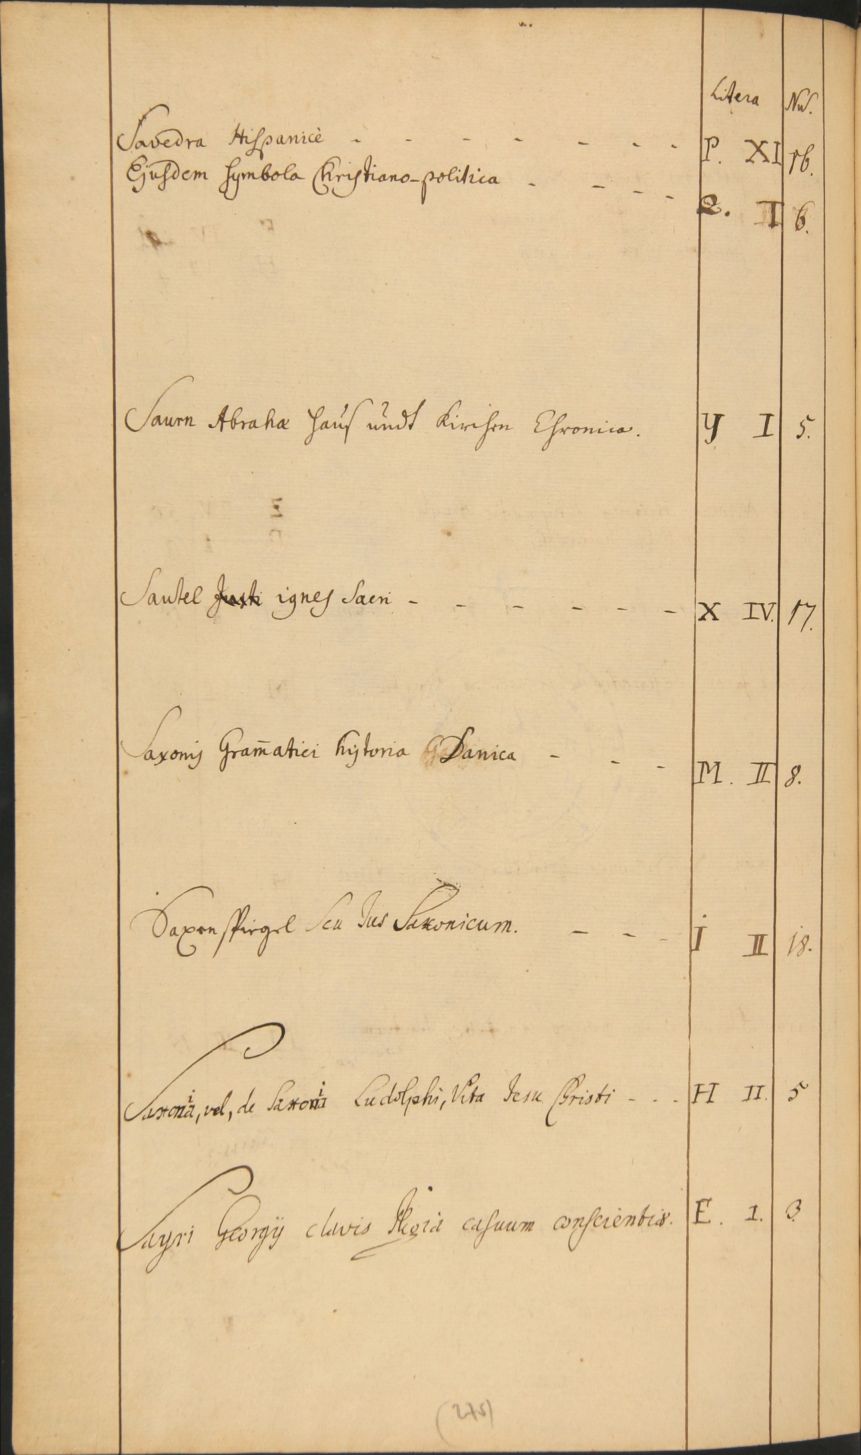 Litera Nus.
Savedra Hispanicè - - - - - - - P. XI 16.
Ejusdem symbola Christiano-politica - - - - Q. I 6.
Saurn Abrahæ Hauß undt Kirchen Chronica. Y I 5.
Sautel ignes Sacri - - - - - - X IV. 17.
Saxonis Gram̄atici historia Danica - - - M. II 8.
Saxenspiegel Seu Jus Saxonicum. - - - I II 18.
Saxoniâ, vel, de Saxoniâ Ludolphi, Vita Jesu Christi - - - H II. 5
Sayri Georgij clavis Regia casuum conscientiæ. E. I. 3
(275)